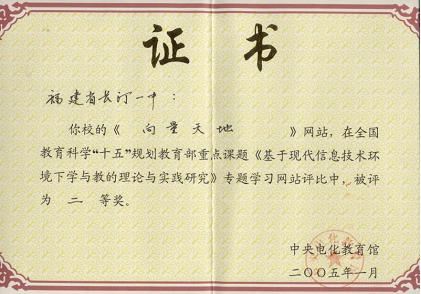 证书
福建省长汀一中：
你校的《 向量天地 》网站，在全国
教育科学“十五”规划教育部重点课题《基于现代信息技术环
境下学与教的理论与实践研究》专题学习网站评比中，被评
为 二 等奖。
中央电化教育馆
二〇〇五年一月